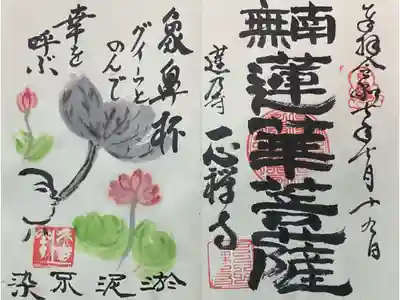 奉拝 令和七年七月十九日
南無蓮華菩薩
一心禅寺
象鼻杯
グイーっと
のんで
幸を
呼ぶ
淤泥不染